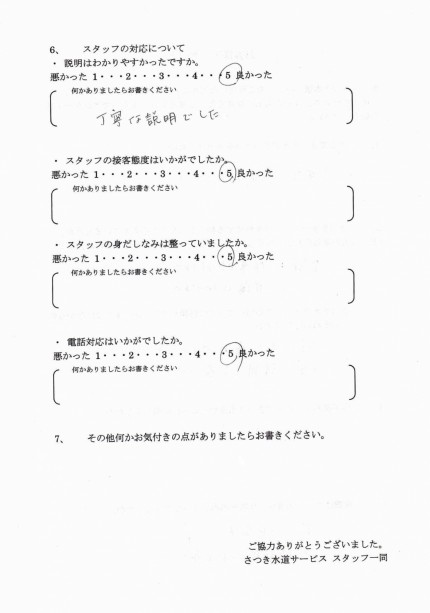 6、 スタッフの対応について
・ 説明はわかりやすかったですか。
悪かった 1・・・2・・・3・・・4・・・5 良かった
何かありましたらお書きください
丁寧な説明でした
・ スタッフの接客態度はいかがでしたか。
悪かった 1・・・2・・・3・・・4・・・5 良かった
何かありましたらお書きください
・ スタッフの身だしなみは整っていましたか。
悪かった 1・・・2・・・3・・・4・・・5 良かった
何かありましたらお書きください
・ 電話対応はいかがでしたか。
悪かった 1・・・2・・・3・・・4・・・5 良かった
何かありましたらお書きください
7、 その他何かお気付きの点がありましたらお書きください。
ご協力ありがとうございました。
さつき水道サービス スタッフ一同